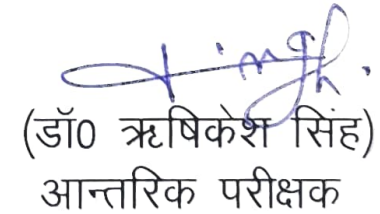 (डॉ0 ऋषिकेश सिंह)
आन्तरिक परीक्षक